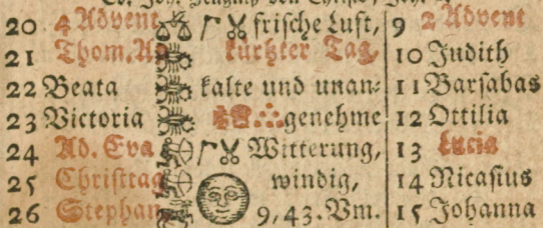 20 4 Advent frische Luft, 9 2 Advent
21 Thom. Ap kürtzter Tag, 10 Judith
22 Beata kalte und unan⸗ 11 Barsabas
23 Victoria genehme 12 Ottilia
24 Ad. Eva Witterung, 13 Lucia
25 Christtag windig, 14 Nicasius
26 Stephan 9, 43. Vm. 15 Johanna